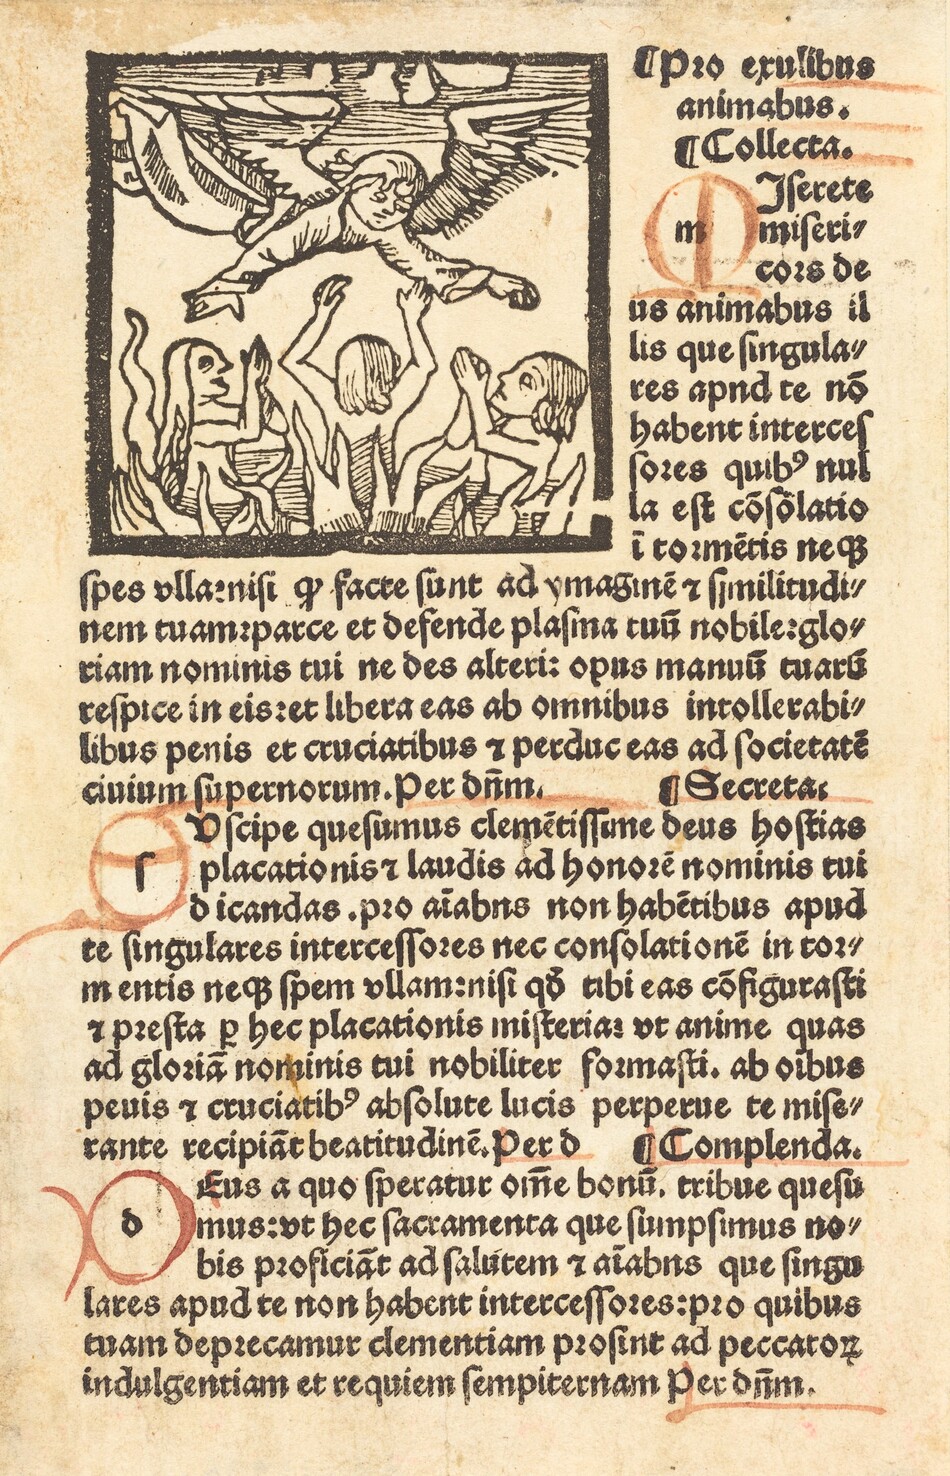 ¶Pro exulibus
animabus.
¶Collecta.
m Iserete
miseri⸗
cors de
us animabus il
lis que singula⸗
res apnd te nō
habent interces
sores quibꝰ nul
la est cōsōlatio
ī tormētis neqꝫ
spes vlla:nisi ꝙ facte sunt ad ymaginē ⁊ similitudi⸗
nem tuam:parce et defende plasma tuū nobile:glo⸗
riam nominis tui ne des alteri: opus manuū tuarū
respice in eis:et libera eas ab omnibus intollerabi⸗
libus penis et cruciatibus ⁊ perduc eas ad societatē
ciuium supernorum.Per dn̄m. ¶Secreta.
s Vscipe quesumus clemētissime deus hostias
placationis⁊ laudis ad honorē nominis tui
dicandas .pro aīabns non habētibus apud
te singulares intercessores nec consolationē in tor⸗
mentis neqꝫ spem vllam:nisi qđ tibi eas cōfigurasti
⁊ presta ꝑ hec placationis misteria: vt anime quas
ad gloriā nominis tui nobiliter formasti. ab oībus
peuis ⁊ cruciatibꝰ absolute lucis perperue te mise⸗
rante recipiāt beatitudinē.Per d ¶Complenda.
d Eus a quo speratur om̄e bonū. tribue quesu
mus:vt hec sacramenta que sumpsimus no⸗
bis proficiāt ad salutem ⁊ aīabns que singu
lares apud te non habent intercessores:pro quibus
tuam deprecamur clementiam prosint ad peccatoꝝ
indulgentiam et requiem sempiternam Per dn̄m.